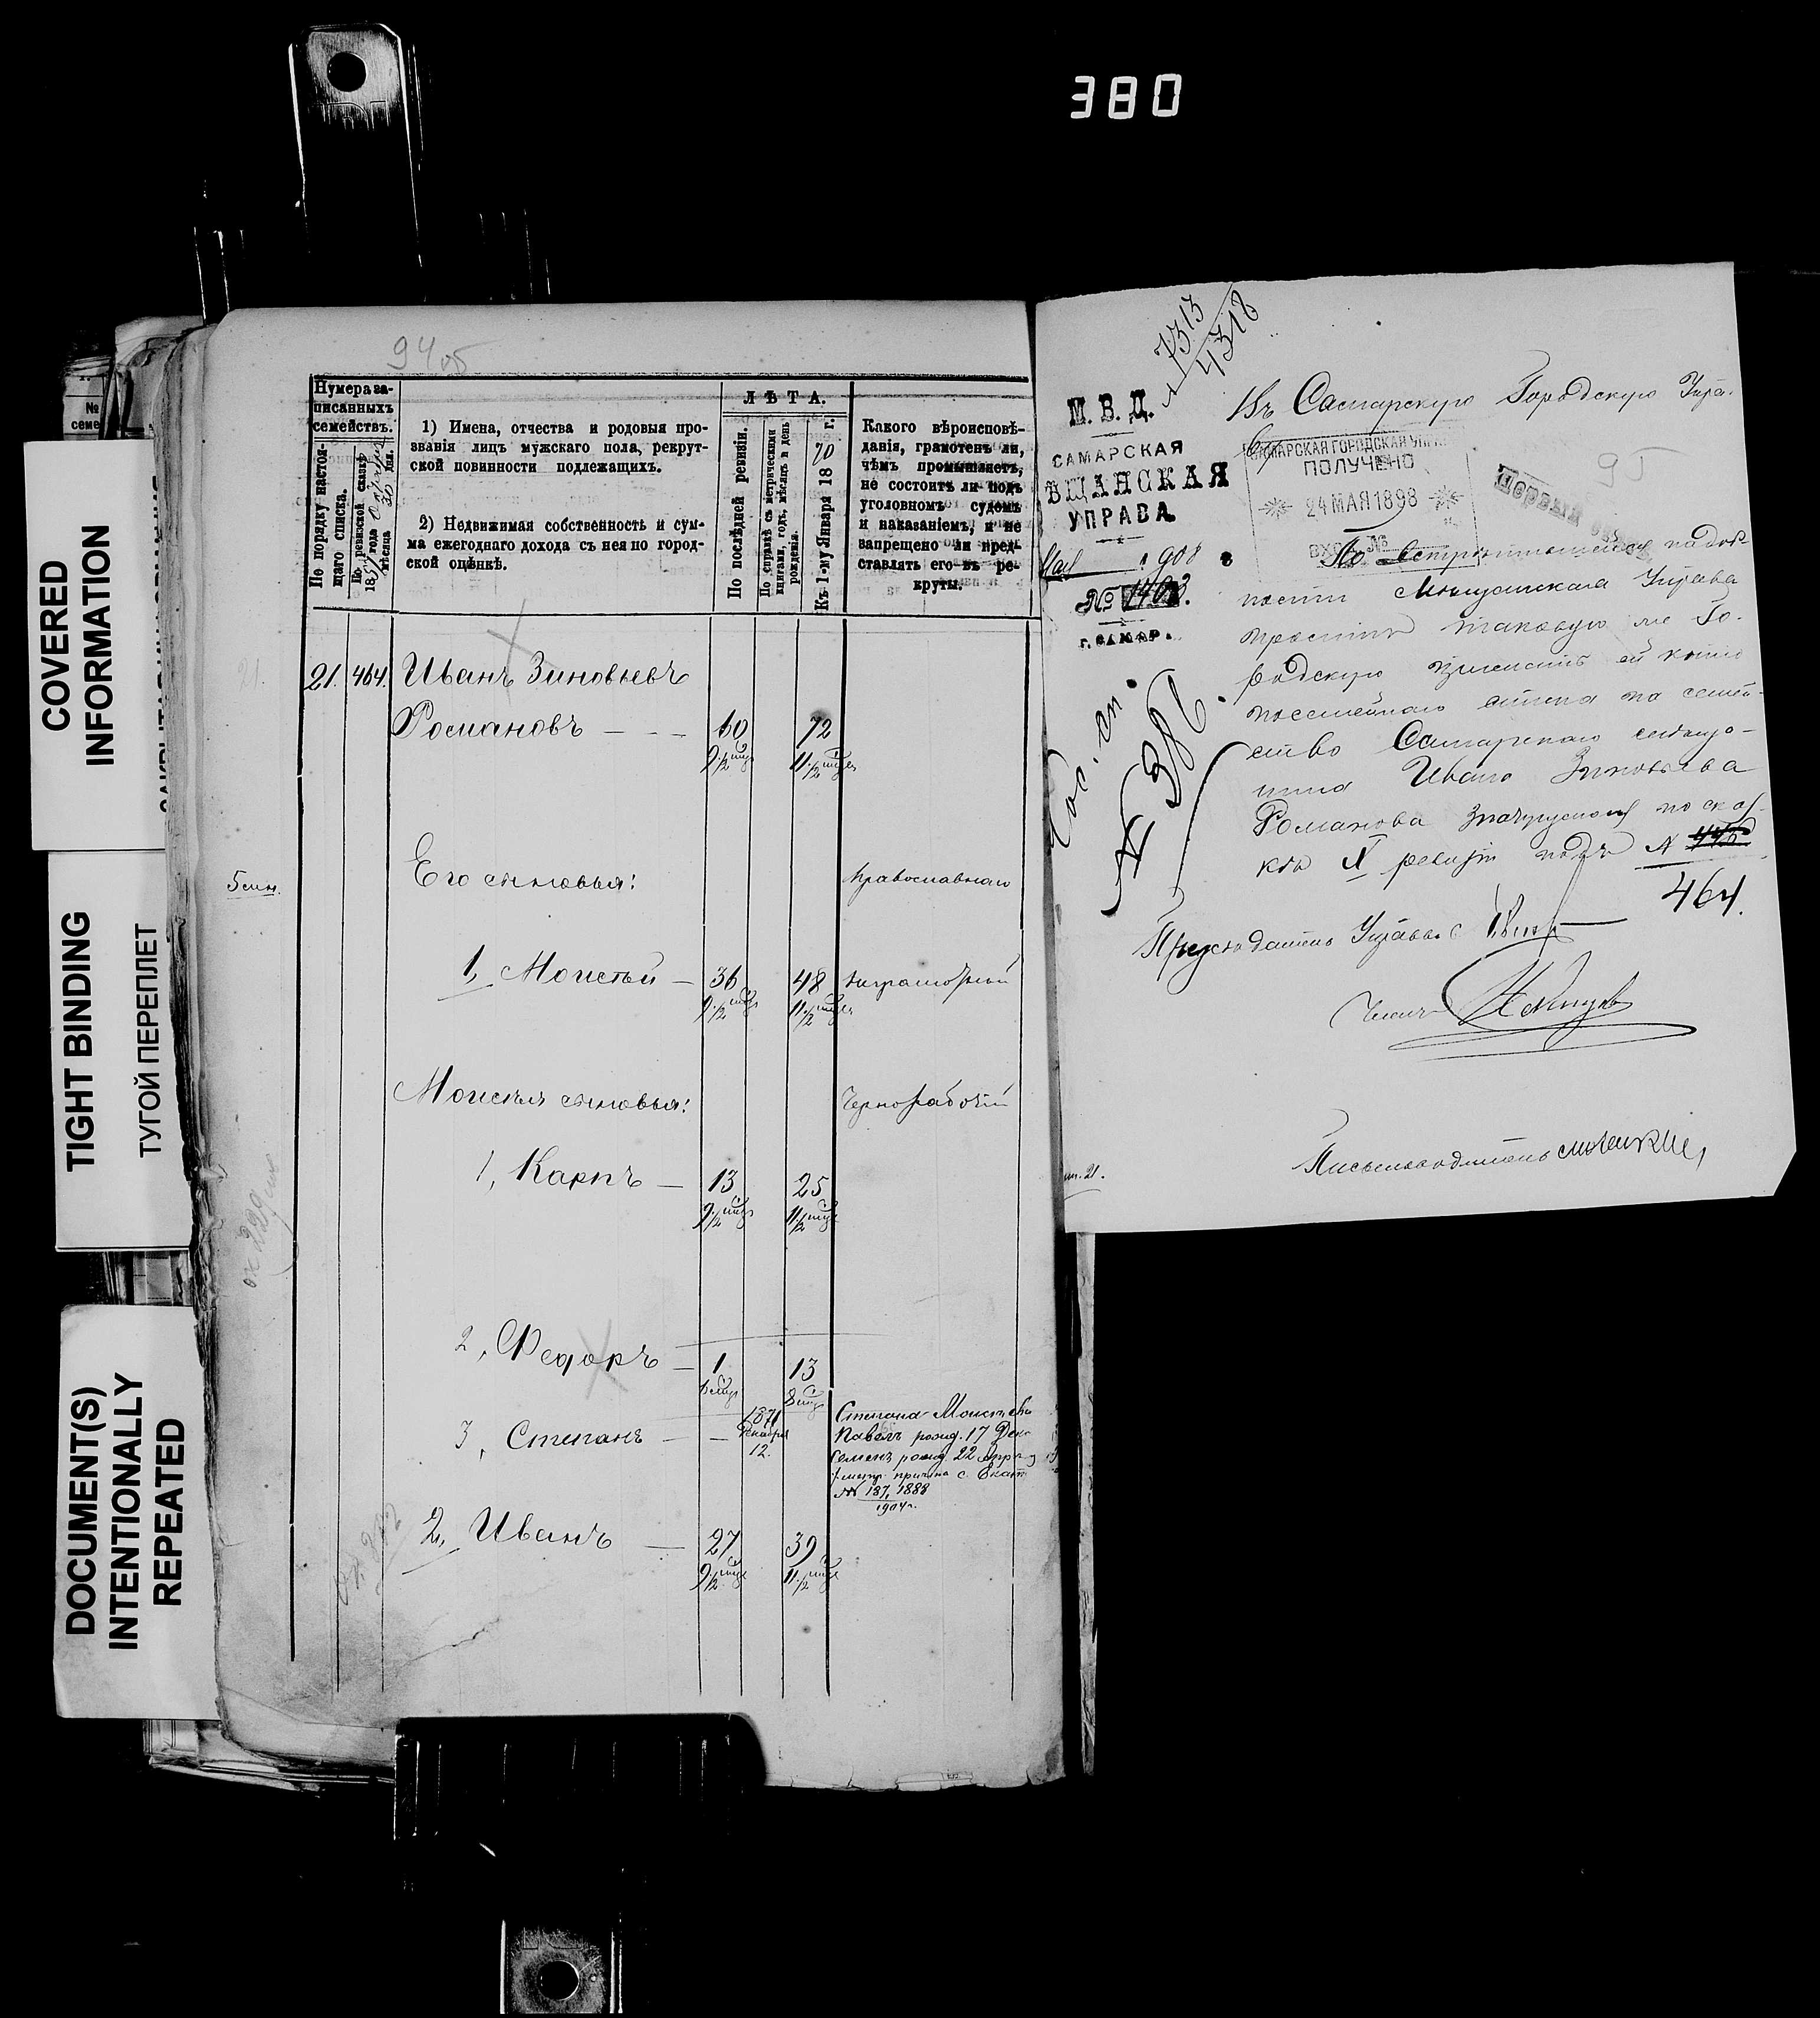 380
COVERED
INFORMATION
TIGHT BINDING
ТУГОЙ ПЕРЕПЛЕТ
DOCUMENT(S)
INTENTIONALLY
REPEATED
№
семе
94 об
Нумера за-
писанныхъ
семействъ.
По порядку настоя-
щаго списка.
По ревизской сказкѣ
1857 года
мѣсяца 30 дня.
1) Имена, отчества и родовыя про-
званія лицъ мужскаго пола, рекрут-
ской повинности подлежащихъ.
2) Недвижимая собственность и сум-
ма ежегоднаго дохода съ нея по город-
ской оцѣнкѣ.
ЛѢТА.
По послѣдней ревизіи.
По справкѣ съ метрическими
книгами, годъ, мѣсяцъ и день
рожденія.
Къ 1-му Января 1870 г.
Какого вѣроисповѣ-
данія, грамотенъ ли,
чѣмъ промышляетъ,
не состоитъ ли подъ
уголовномъ судомъ
и наказаніемъ, и не
запрещено ли пред-
ставлять его въ ре-
круты.
21.
21. 464. Иванъ Зиновьевъ
Романовъ — 60 72
9 1/2 11 1/2
5 сем.
Его сыновья: православнаго
1, Моисей — 36 48 неграмотный
9 1/2 11 1/2
Моисея сыновья: Чернорабочій
1, Карпъ — 13 25
9 1/2 11 1/2
2, Федоръ — 1 13
3, Степанъ — 1871 Декабря 12.
Степана Моисеева
Павелъ рожд. 17 Дека
Семенъ рожд. 22 Апр
№ 187, 1888
1904 г.
2, Иванъ — 27 39
9 1/2 11 1/2
№ 7313
4318
М. В. Д.
САМАРСКАЯ
ѢЩАНСКАЯ
УПРАВА
Мая
№ 1403.
г. САМАР.
№ 386
Въ Самарскую Городскую Упра-
САМАРСКАЯ ГОРОДСКАЯ УПР
ПОЛУЧЕНО
24 МАЯ 1898
ВХ. №
95
По встретившейся надоб-
ности Мѣщанская Управа
проситъ таковую же Го-
родскую выслать ей копію
посемейнаго списка на семей-
ство Самарскаго мѣщани-
на Ивана Зиновьева
Романова значущагося по сказ-
кѣ X ревизіи подъ № 445
464.
Предсѣдатель Управы
Членъ
Письмоводитель